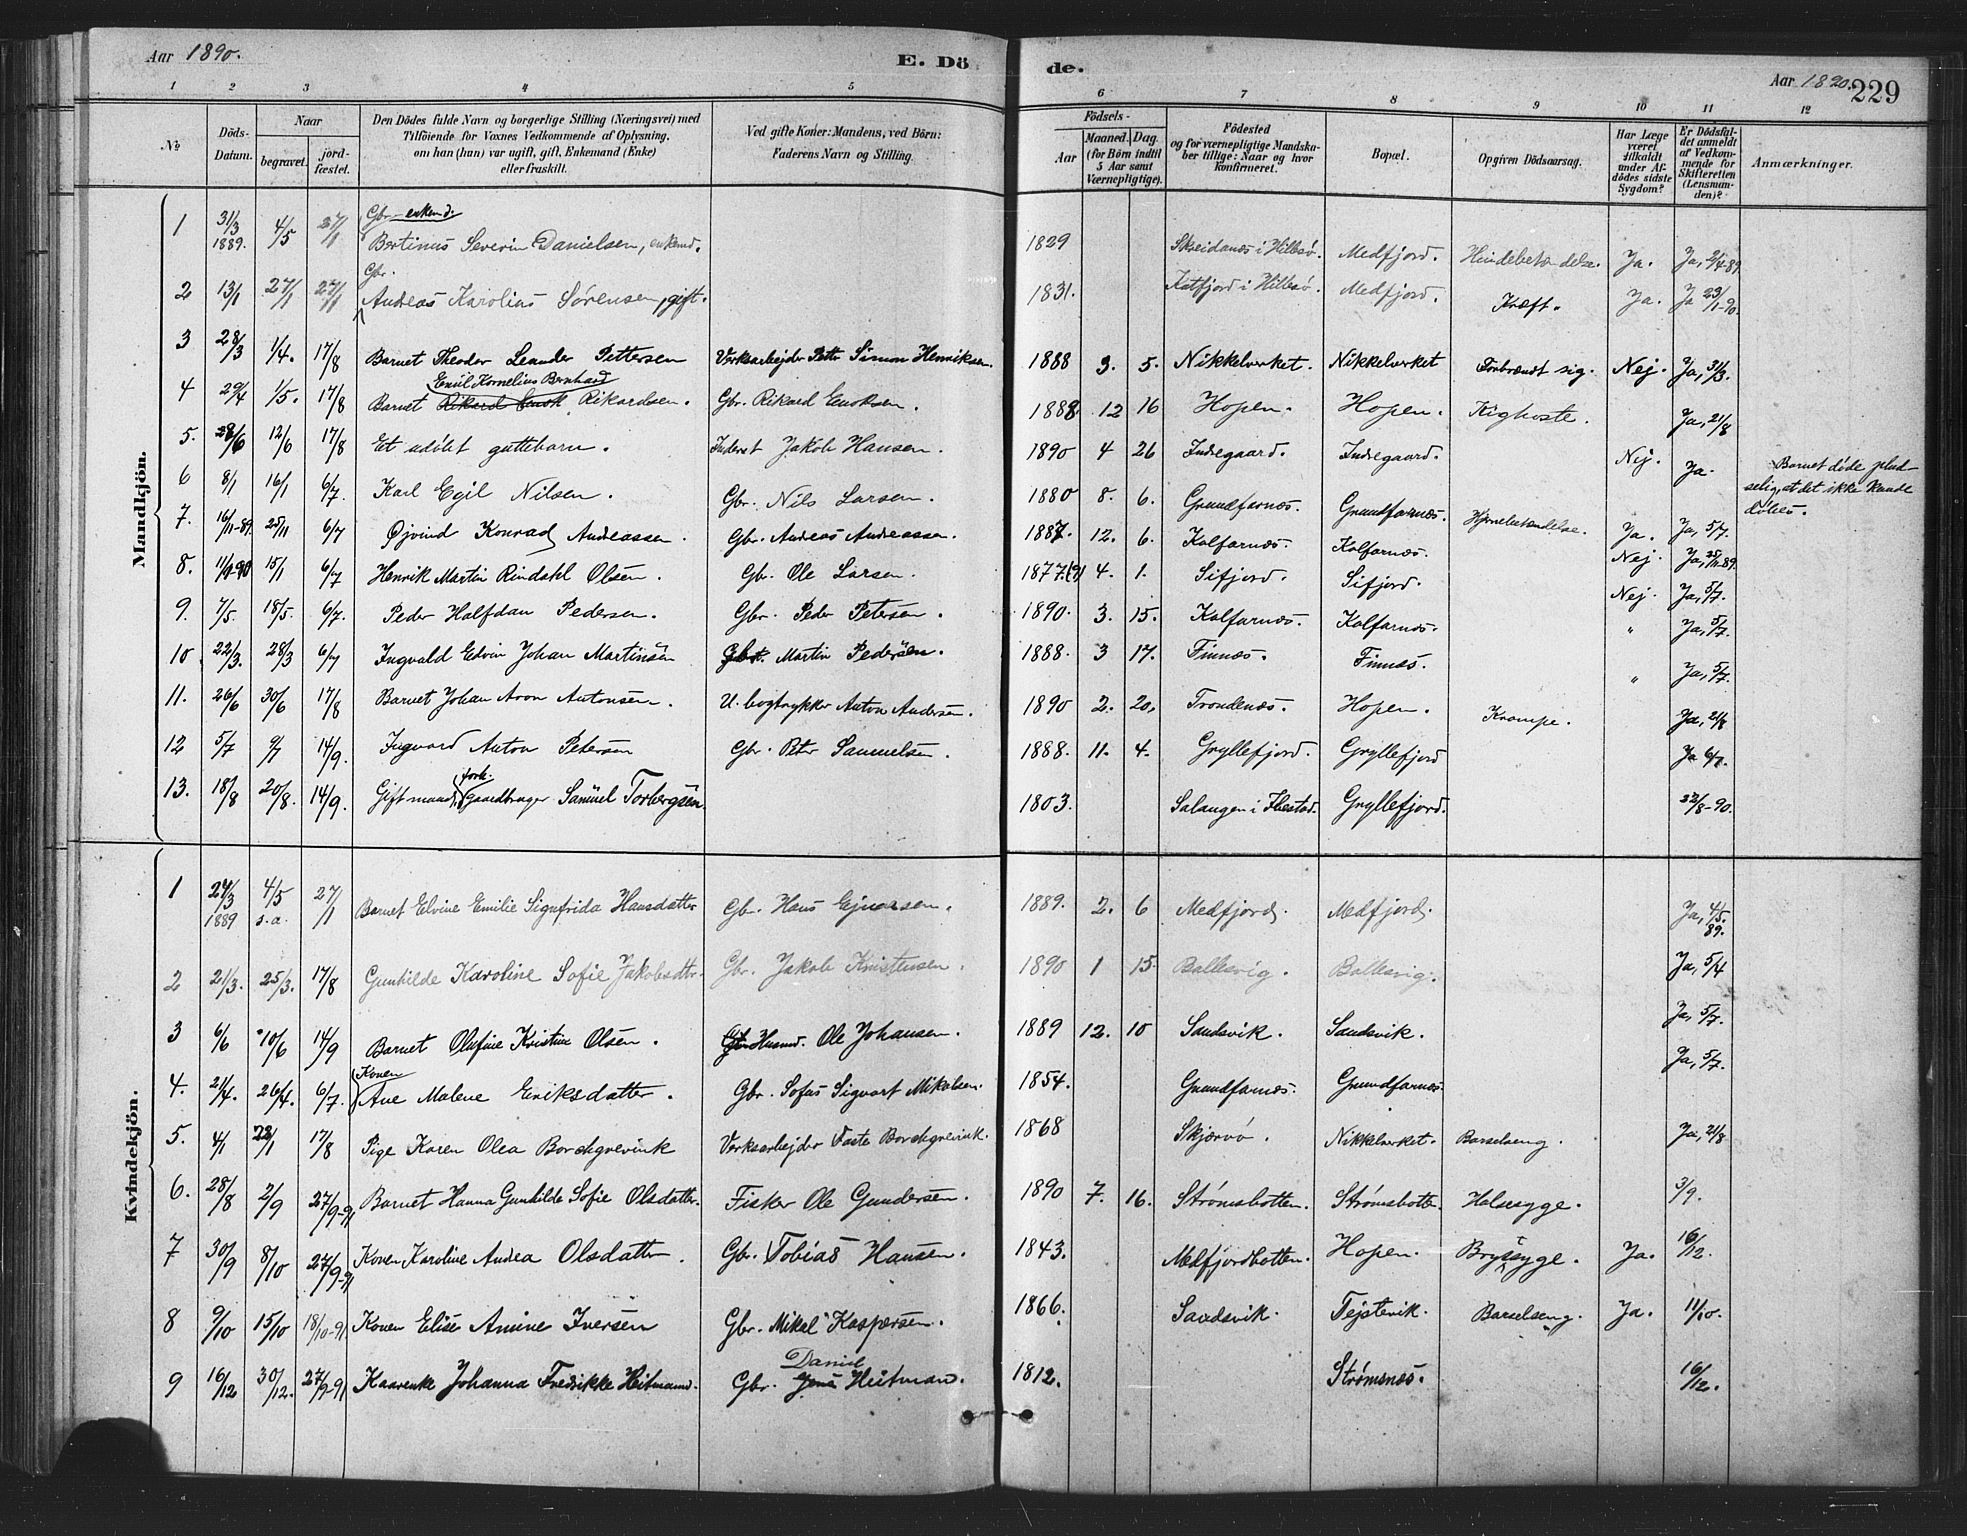 Aar 1890.
E. Dö
de.
Aar 1890.
229
1 2 3 4 5 6 7 8 9 10 11 12
№
Döds-Datum.
Naar
begravet.
jord-fæstet.
Den Dödes fulde Navn og borgerlige Stilling (Næringsvei) med
Tilföiende for Voxnes Vedkommende af Oplysning.
om han (hun) var ugift, gift, Enkemand (Enke)
eller fraskilt.
Ved gifte Koner: Mandens, ved Börn:
Faderens Navn og Stilling.
Födsels-
Aar
Maaned. Dag.
(for Börn indtil
5 Aar samt
Værnepligtige).
Födested
og for værnepligtige Mandska-
ber tillige: Naar og hvor
konfirmeret.
Bopæl.
Opgiven Dödsaarsag.
Har Læge
været
tilkaldt
under Af-
dödes sidste
Sygdom?
Er Dödsfal-
det anmeldt
af Vedkom-
mende for
Skifteretten
(Lensman-
den)?
Anmærkninger.
Mandkjön.
1 31/3 1889. 4/5 27/1 Gbr. enkemd. Bertinus Severin Danielsen, enkemd. 1829 Skreidanes i Hillesø. Medfjord. Hindebetændelse. Ja. Ja, 2/4-89.
2 13/1 27/1 27/1 Gbr. Andreas Karolius Sørensen, gift. 1831. Katfjord i Hillesø. Medfjord. Kræft. Ja. Ja 23/1-90.
3 28/3 1/4. 17/8 Barnet Theodor Leander Pettersen Verksarbejder Petr Simon Henriksen. 1888 3. 5. Nikkelverket. Nikkelverket Forbrændt sig. Nej. Ja, 31/3.
4 29/4 1/5. 17/8 Barnet Rikard Enok Emil Kornelius Bernhard Rikardsen. Gbr. Rikard Enoksen. 1888 12 16 Hopen. Hopen. Kighoste. Ja, 21/8
5. 28/6 12/6 17/8 Et udøbt guttebarn. Inderst Jakob Hansen. 1890 4 26 Indregaard. Indregaard. Nej. Ja. Barnet døde plud-
selig, at det ikke kunde
døbes.
6 8/1 16/1 6/7. Karl Egil Nilsen. Gbr. Nils Larsen. 1880 8. 6. Grundfarnes. Grundfarnes. Hjernebetændelse. Ja. Ja, 5/7.
7. 16/11-89. 25/11 6/7 Øjvind Konrad Andreassen. Gbr. Andreas Andreassen. 1887. 12. 6. Kalfarnes. Kalfarnes. Nej. Ja, 25/11-89.
8. 11/1-90 15/1 6/7 Henrik Martin Rindahl Olsen. Gb. Ole Larsen. 1877.(?) 4. 1. Sifjord. Sifjord. Nej. Ja, 5/7.
9. 7/5. 18/5. 6/7. Peder Halfdan Pedersen. Gbr. Peder Petersen. 1890. 3. 15. Kalfarnes. Kalfarnes. " Ja, 5/7.
10 22/3. 28/3 6/7 Ingvald Edvin Johan Martinsen Gbr. Martin Pedersen. 1888. 3 17. Finnes. Finnes. " Ja, 5/7.
11. 26/6 30/6 17/8 Barnet Johan Aron Antonsen. U. bogtrykker Anton Andersen. 1890 2. 20. Trondenes. Hopen. Krampe. Ja, 21/8
12 5/7 9/7 14/9. Ingvard Anton Petersen Gbr. Petr Samuelsen. 1888. 11. 4. Gryllefjord. Gryllefjord Ja 6/7.
13. 18/8 20/8. 14/9. Gift mand, forh. Gaardbruger Samuel Torbergsen. 1803. Salangen i Ibestad. Gryllefjord. 22/8-90.
Kvindekjön.
1 24/3 1889 4/5 s.a. 27/1 Barnet Elvine Emilie Signfrida Hansdatter Gbr. Hans Ejnarsen. 1889. 2. 6 Medfjord. Medfjord. Ja, 4/5. 89.
2 21/3. 25/3. 17/8 Gunhilde Karoline Sofie Jakobsdtr. Gbr. Jakob Kristensen. 1890 1 15. Ballesvig. Ballesvig. Ja, 5/4
3 6/6 10/6 14/9 Barnet Olufine Kristine Olsen. Gbr. Husmd. Ole Johansen. 1889 12. 10 Sandsvik. Sandsvik. Ja, 5/7.
4. 21/4. 26/4. 6/7. Konen Ane Malene Eriksdatter. Gbr. Sofus Sigvart Mikalsen. 1854. Grundfarnes. Grundfarnes. Ja, 5/7.
5. 4/1 23/1 17/8 Pige Karen Olea Borchgrevink Verksarbejder Faste Borchgrevink. 1868 Skjærvø. Nikkelverket. Barselseng. Ja, 21/8
6. 28/8 2/9 27/9-91 Barnet Hanna Gunhilde Sofie Olsdatter. Fisker Ole Gundersen. 1890 7. 16. Strømsbotten. Strømsbotten. Halssyge. 3/9.
7 30/9 8/10 27/9-91 Konen Karoline Andrea Olsdatter. Gbr. Tobias Hansen. 1843. Medfjordbotten. Hopen. Brystsyge. Ja. 16/12.
8 9/10 15/10 18/10-91 Konen Elise Amine Iversen Gbr. Mikal Kaspersen. 1866. Sandsvik. Tejstevik. Barselseng. Ja. 11/10.
9 16/12 30/12. 27/9-91 Kaarenke Johanna Fredrikke Heitmand. Gbr. Jens Daniel Heitman. 1812. Strømsnes. 16/12.